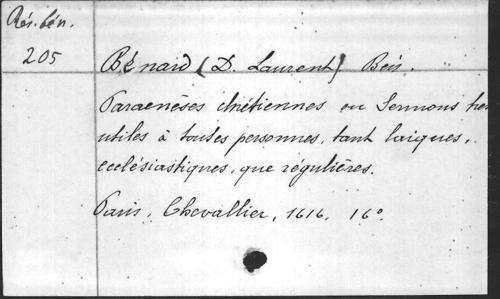 Rés. bén.
205
Bénard (D. Laurent) Bén.
Paraenèses chrétiennes ou Sermons très
utiles à toutes personnes, tant laiques,
ecclésiastiques, que régulières.
Paris, Chevallier, 1616. 16°.